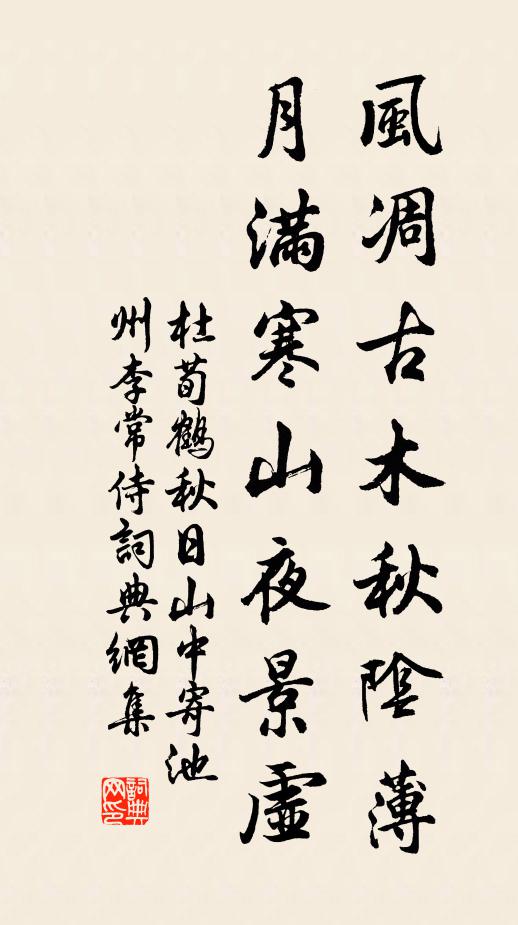 風凋古木秋陰薄
月滿寒山夜景虛
杜荀鶴秋日山中寄池
州李常侍詞典網集
詞典网印